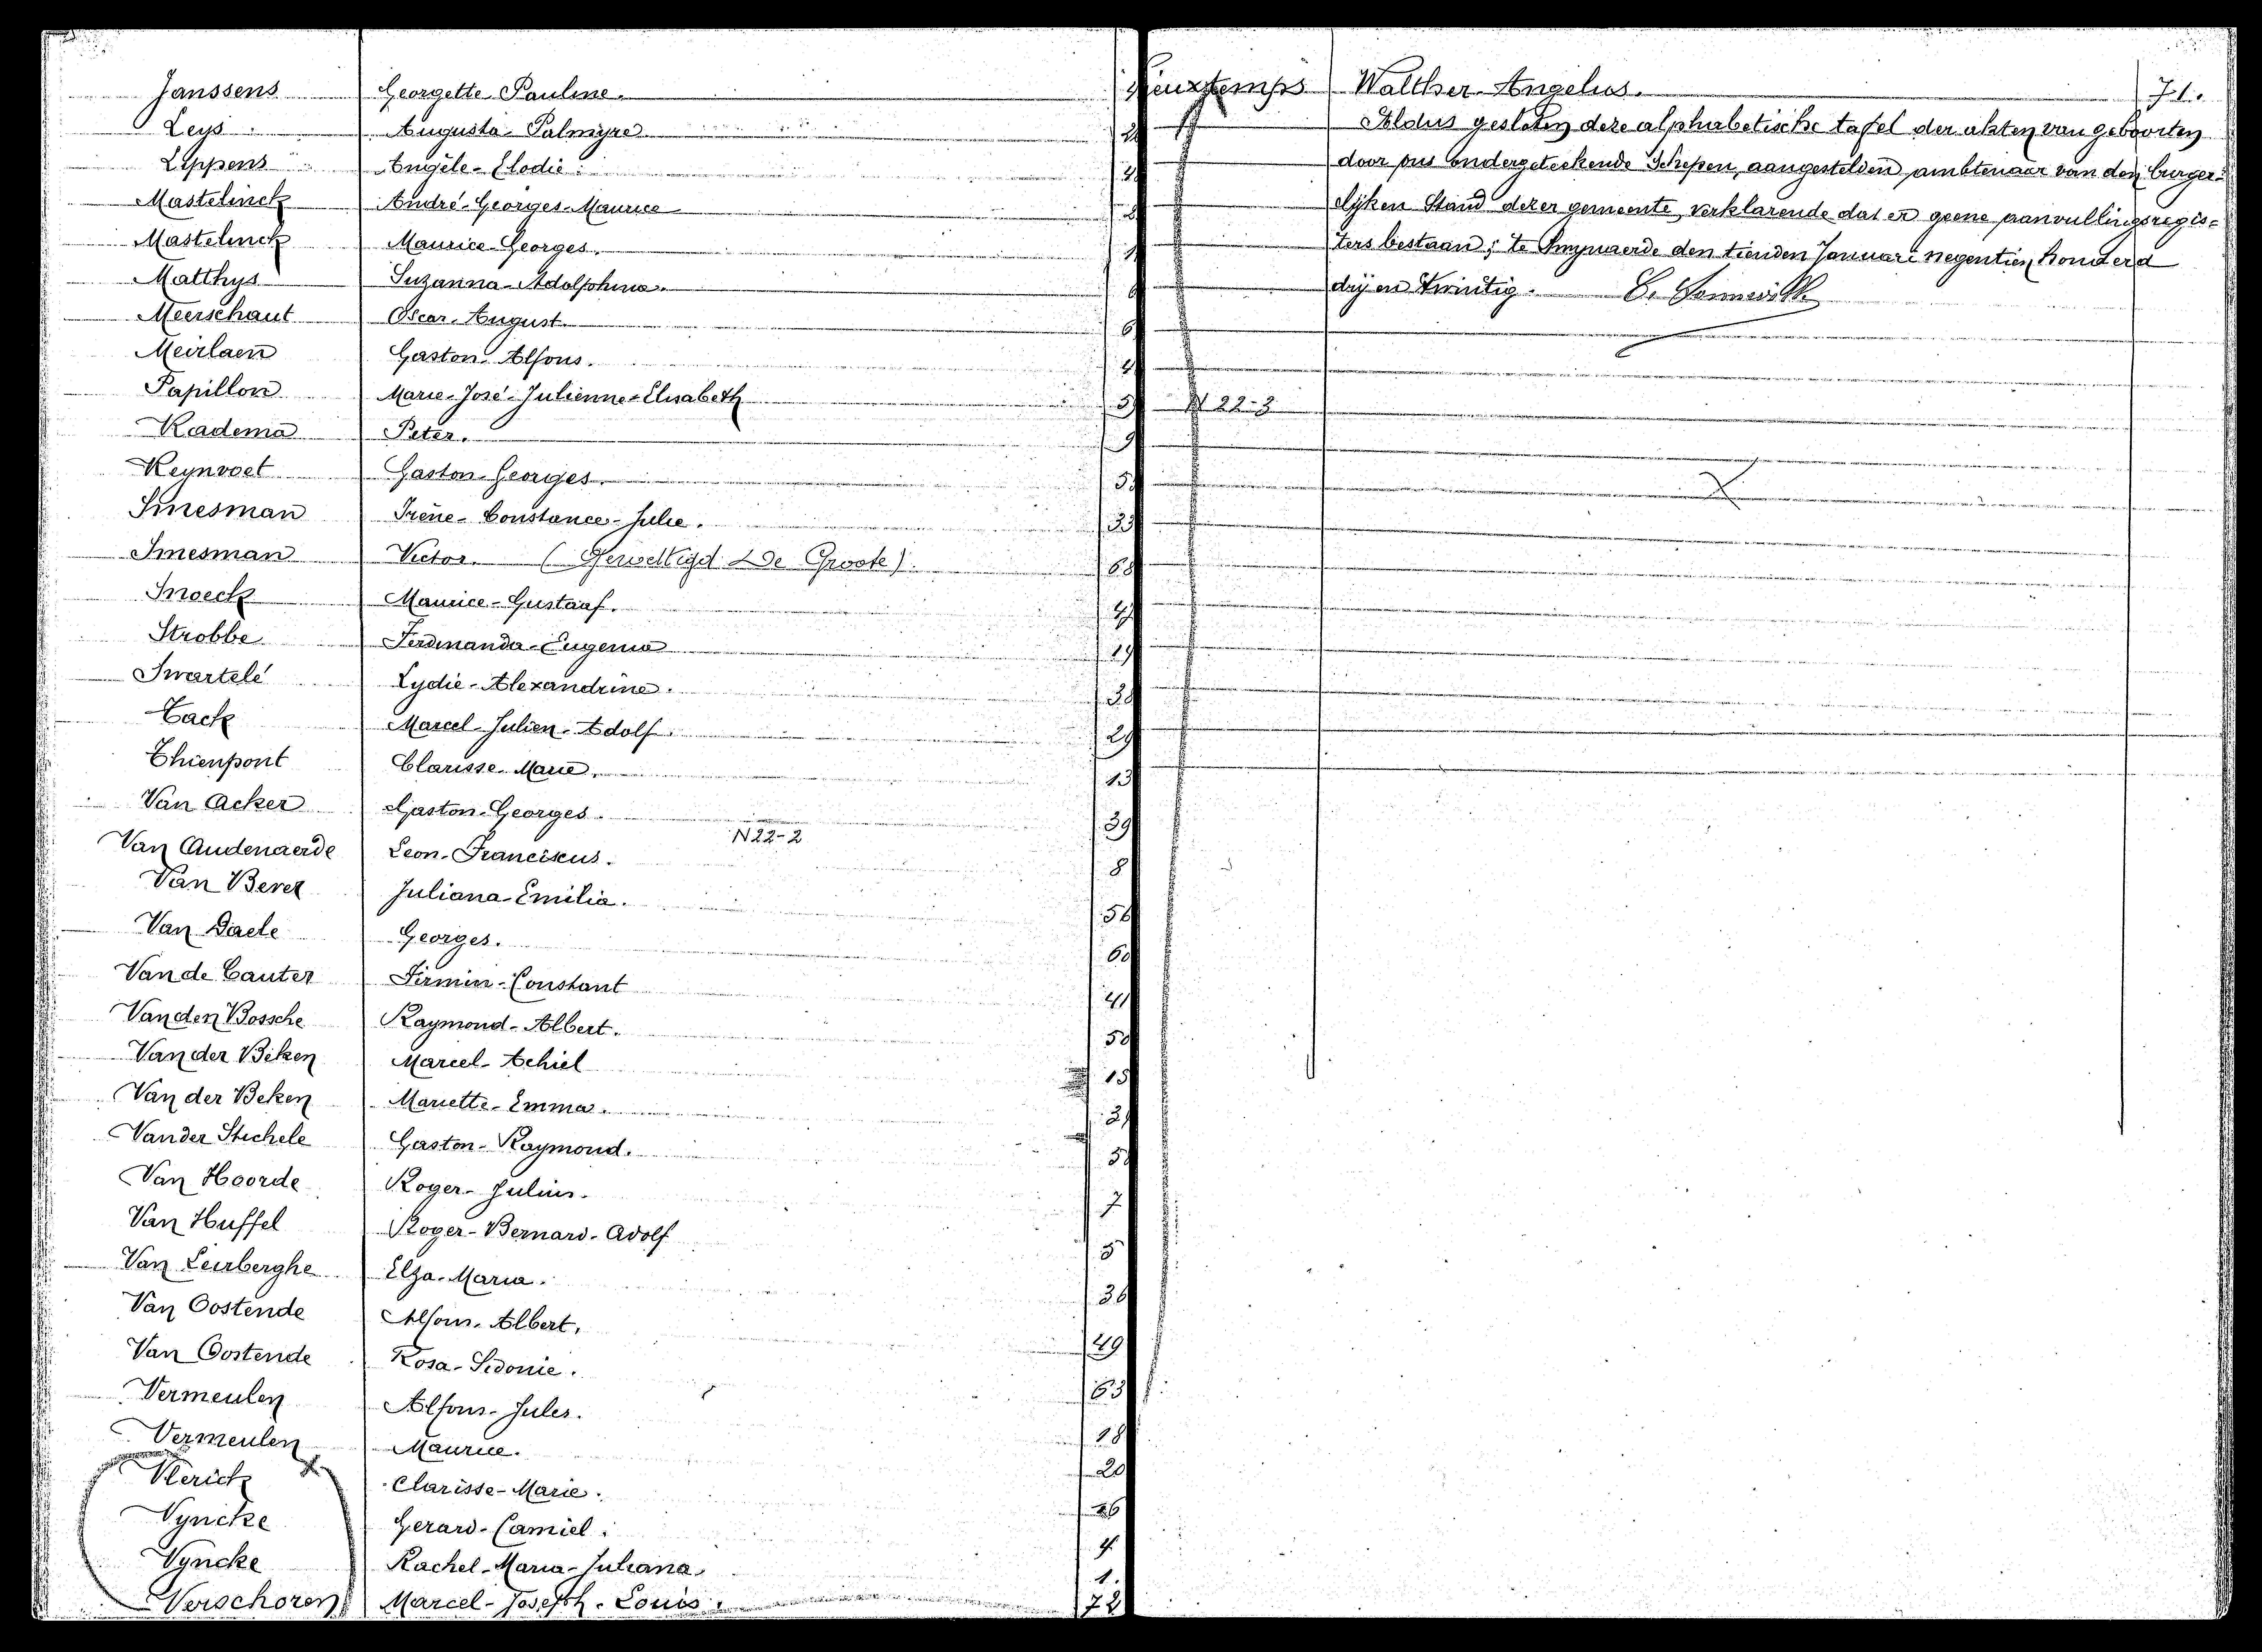 Janssens Georgette-Pauline.
Leys Augusta-Palmyre
Lippens Angèle-Elodie.
Mastelinck André-Georges-Maurice
Mastelinck Maurice-Georges.
Matthys Suzanna-Adolphina.
Meerschaut Oscar-August 6
Meirlaen Gaston-Alfons.
Papillon Marie-José-Julienne-Elisabeth
Radema Peter. 9
Reynvoet Gaston-Georges.
Smesman Irène-Constance-Julie.
Smesman Victor. (Gewettigd De Groote)
Snoeck Maurice-Gustaaf.
Strobbe Ferdinanda-Eugenia
Swartelé Lydie-Alexandrine.
Tack Marcel-Julien-Adolf. 29
Thienpont Clarisse-Marie. 13
Van Acker Gaston-Georges. 39
N22-2
Van Audenaerde Leon-Franciscus. 8
Van Bever Juliana-Emilia.
Van Daele Georges. 60
Van de Cauter Firmin-Constant 41
Van den Bossche Raymond-Albert. 50
Van der Beken Marcel-Achiel 15
Van der Beken Mariette-Emma.
Van der Stichele Gaston-Raymond.
Van Hoorde Roger-Julius. 7
Van Huffel Roger-Bernard-Adolf 5
Van Leirberghe Elza-Maria. 36
Van Oostende Alfons-Albert. 49
Van Oostende Rosa-Sidonie. 63
Vermeulen Alfons-Jules. 18
Vermeulen Maurice. 20
Vlerick Clarisse-Marie. 26
Vyncke Gerard-Camiel.
Vyncke Rachel-Maria-Juliana 1.
Verschoren Marcel-Joseph-Louis. 72
Walther-Angelus. 71.
Aldus gesloten deze alphabetische tafel der akten van geboorten
door ons ondergeteekende Schepen, aangestelden ambtenaar van den burger-
lijken Stand dezer gemeente, verklarende dat er geene aanvullingsregis-
ters bestaan; te den tienden Januari negentien honderd
drij en twintig.
N 22-3